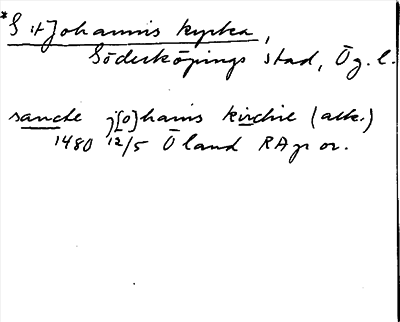 *S:t Johannis kyrka,
Söderköpings stad, Ög.l.
sancte j[o]hanis kirchie (ack.)
1480 12/5 Öland RApr or.